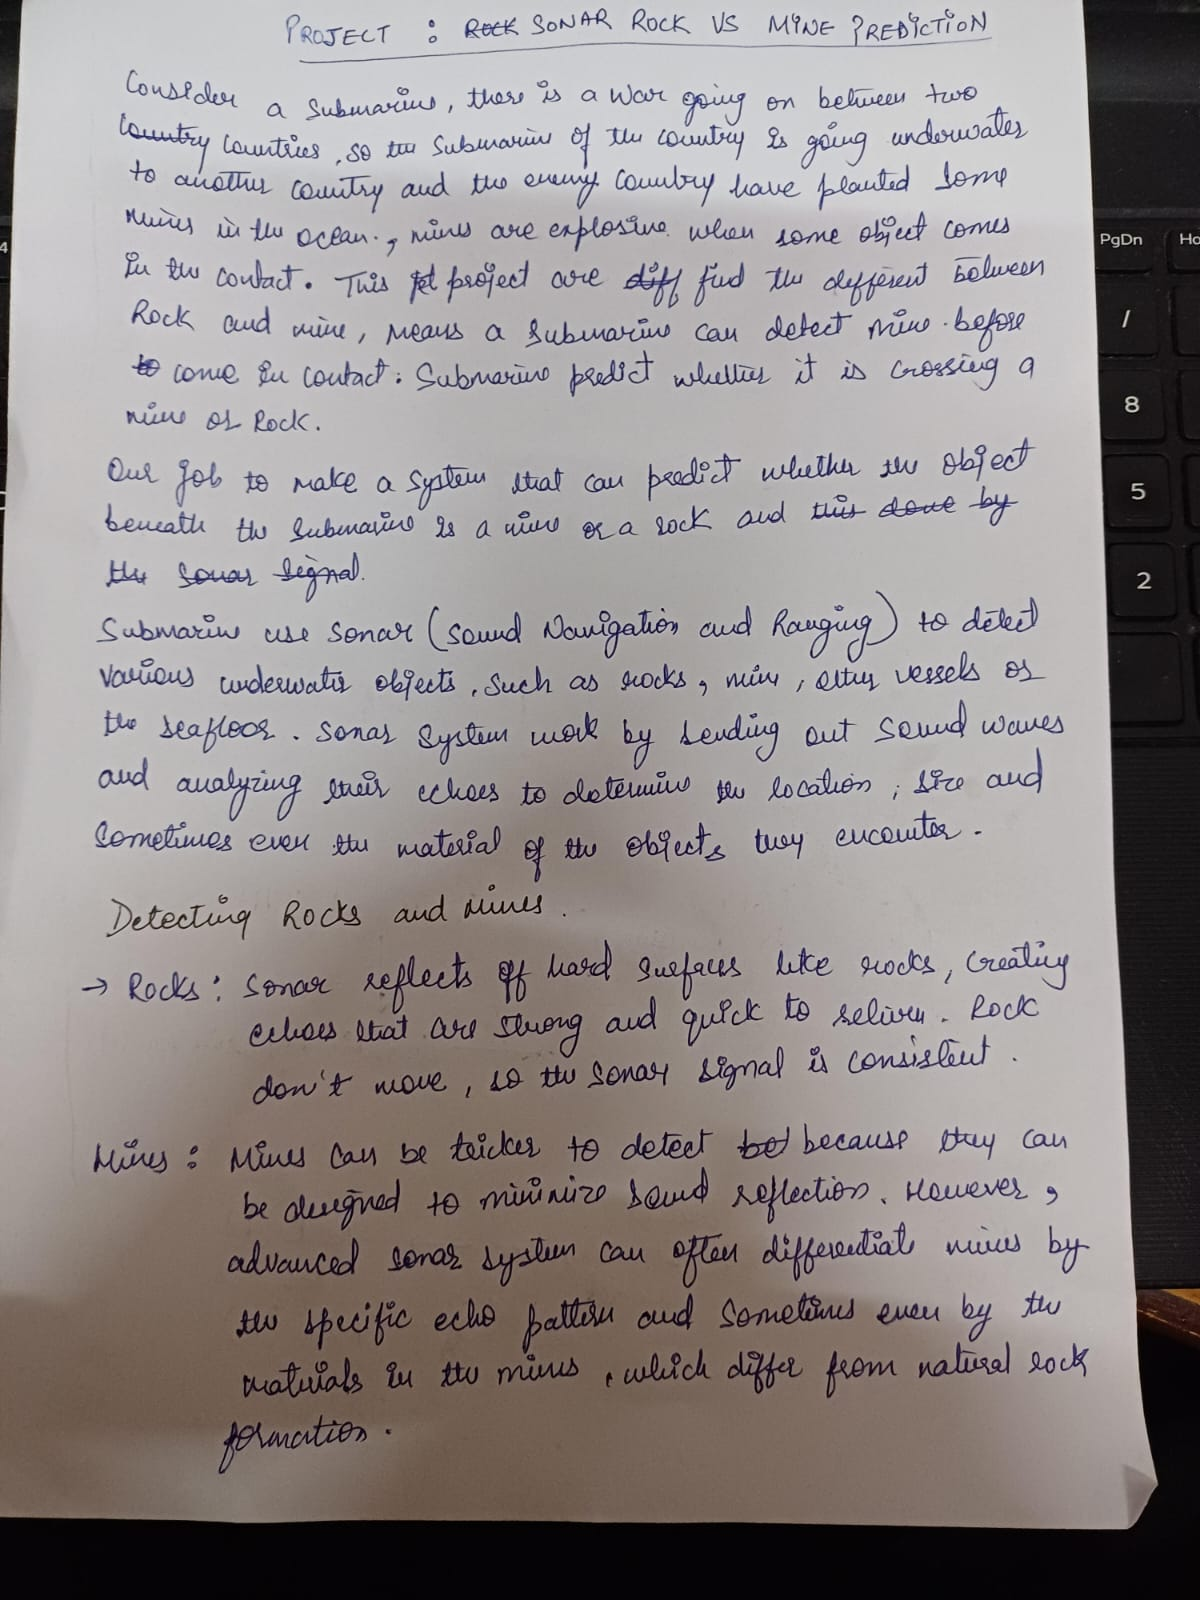 PROJECT : ROCK SONAR ROCK VS MINE PREDICTION
Consider a submarine, there is a war going on between two
Country Countries, so the submarine of the country is going underwater
to another country and the enemy country have planted some
mines in the ocean., mines are explosive when some object comes
in the contact. This project are diff find the different between
Rock and mine, means a submarine can detect mine before
to come in contact. Submarine predict whether it is crossing a
mine or Rock.
Our job to make a system that can predict whether the object
beneath the submarine is a mine or a rock and this done by
the sonar signal.
Submarine use sonar (sound Navigation and Ranging) to detect
various underwater objects, such as rocks, mine, other vessels or
the seafloor. Sonar system work by sending out sound waves
and analyzing their echoes to determine the location, size and
sometimes even the material of the objects they encounter.
Detecting Rocks and mines.
→ Rocks : Sonar reflects off hard surfaces like rocks, creating
echoes that are strong and quick to return. Rock
don't move, so the sonar signal is consistent.
Mines : Mines can be tricker to detect because they can
be designed to minimize sound reflection. However,
advanced sonar system can often differentiate mines by
the specific echo pattern and sometimes even by the
materials in the mines, which differ from natural rock
formation.
PgDn
Ho
4
/
8
5
2